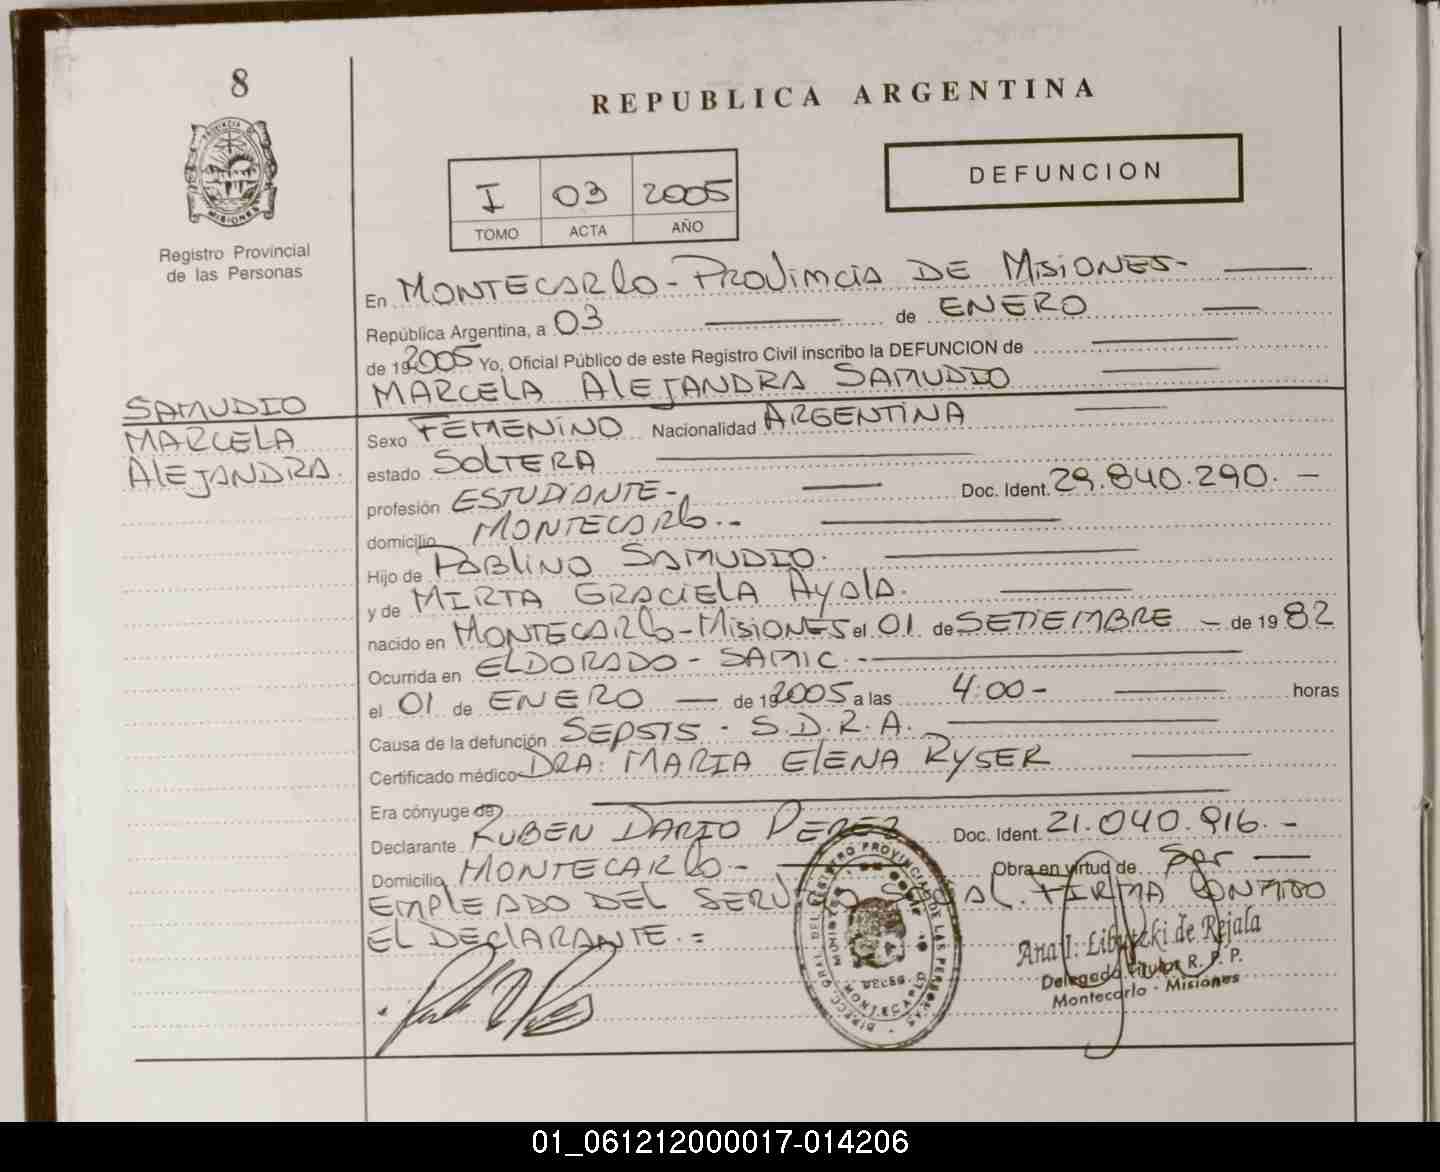 8
REPUBLICA ARGENTINA
PROVINCIA DE
MISIONES
Registro Provincial
de las Personas
I 03 2005
TOMO ACTA AÑO
DEFUNCION
En MONTECARLO - PROVINCIA DE MISIONES -
República Argentina, a 03 de ENERO
de 192005 Yo, Oficial Público de este Registro Civil inscribo la DEFUNCION de
MARCELA ALEJANDRA SAMUDIO
SAMUDIO
MARCELA
ALEJANDRA.
Sexo FEMENINO Nacionalidad ARGENTINA
estado SOLTERA
profesión ESTUDIANTE - Doc. Ident. 29.840.290. -
domicilio MONTECARLO. -
Hijo de PABLINO SAMUDIO.
y de MIRTA GRACIELA AYALA.
nacido en MONTECARLO - MISIONES el 01 de SETIEMBRE - de 1982
Ocurrida en ELDORADO - SAMIC. -
el 01 de ENERO - de 192005 a las 4:00 - horas
Causa de la defunción SEPSIS - S.D.R.A.
Certificado médico DRA: MARIA ELENA RYSER
Era cónyuge de
Declarante RUBEN DARIO PEREZ Doc. Ident. 21.040.916. -
Domicilio MONTECARLO - Obra en virtud de ser
EMPLEADO DEL SERVICIO SOCIAL. FIRMA CONMIGO
EL DECLARANTE. =
DEL REGISTRO PROVINCIAL DE LAS PERSONAS
MONTECARLO
Ana I. Libutzki de Rejala
Delegada Titular R. P. P.
Montecarlo - Misiones
01_061212000017-014206